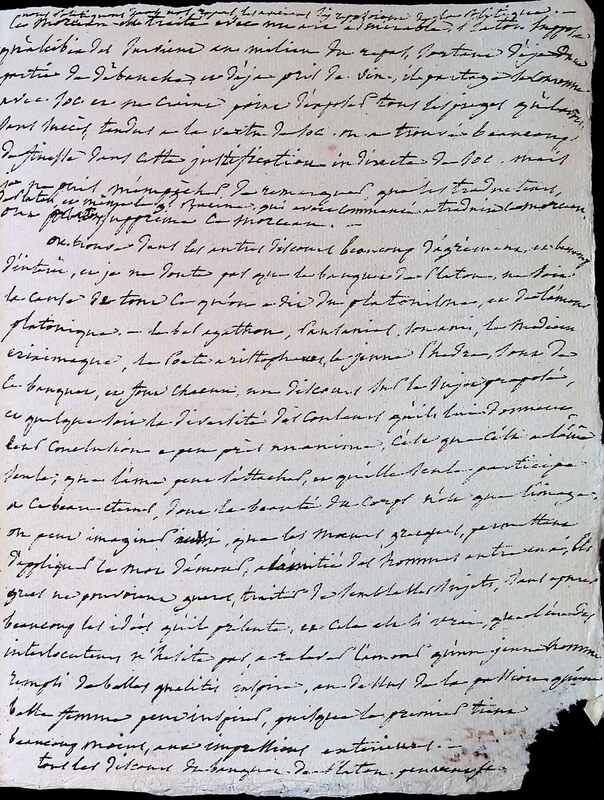 ce morceau est traité avec un art admirable, Platon suppose
qu'alcibiade survient au milieu du repas, sortant déja d'une
partie de débauche, et déja pris de vin, il partage sa couronne
avec Soc. et ne craint point d'exposer tous les pieges qu'il a
sans succès, tendus a la vertu de Soc. on a trouvé beaucoup
de finesse dans cette justification indirecte de Soc. mais
je ne puis m'empêcher de remarquer que les traducteurs,
de Platon, et même le gd racine, qui avoit commencé a traduire ce morceau
ont supprimé ce morceau. —
on trouve dans les autres discours beaucoup d'agrément, et beaucoup
d'interêt, et je ne doute pas que le banquet de Platon, ne soit
la cause de tout ce qu'on a dit du platonisme, et de l'amour
platonique. — le bel agathon, Pausanias, son ami, le medecin
eriximaque, le Poete aristophanes, le jeune Phedre, sont de
ce banquet, et font chacun, un discours sur le sujet proposé,
et quelque soit la diversité des couleurs qu'ils lui donnent,
leur conclusion a peu près unanime, c'est que c'est a l'âme
seule, que l'âme peut s'attacher, et qu'elle seule participe
a ce beau eternel, dont la beauté du corps n'est que l'image.
on peut imaginer aussi, que les moeurs grecques, permettant
d'appliquer le mot d'amour, a l'amitié des hommes entre eux, les
grecs ne pouvoient guere, traiter de semblables sujets, sans
beaucoup les idées qu'il présente, et cela est si vrai, que l'un des
interlocuteurs n'hesite pas, a relever l'amour qu'un jeune homme
rempli de belles qualités inspire, au dessus de la passion qu'une
belle femme peut inspirer, quoique le premier tienne
beaucoup moins, aux impressions exterieures. —
tous les discours du banquet de Platon